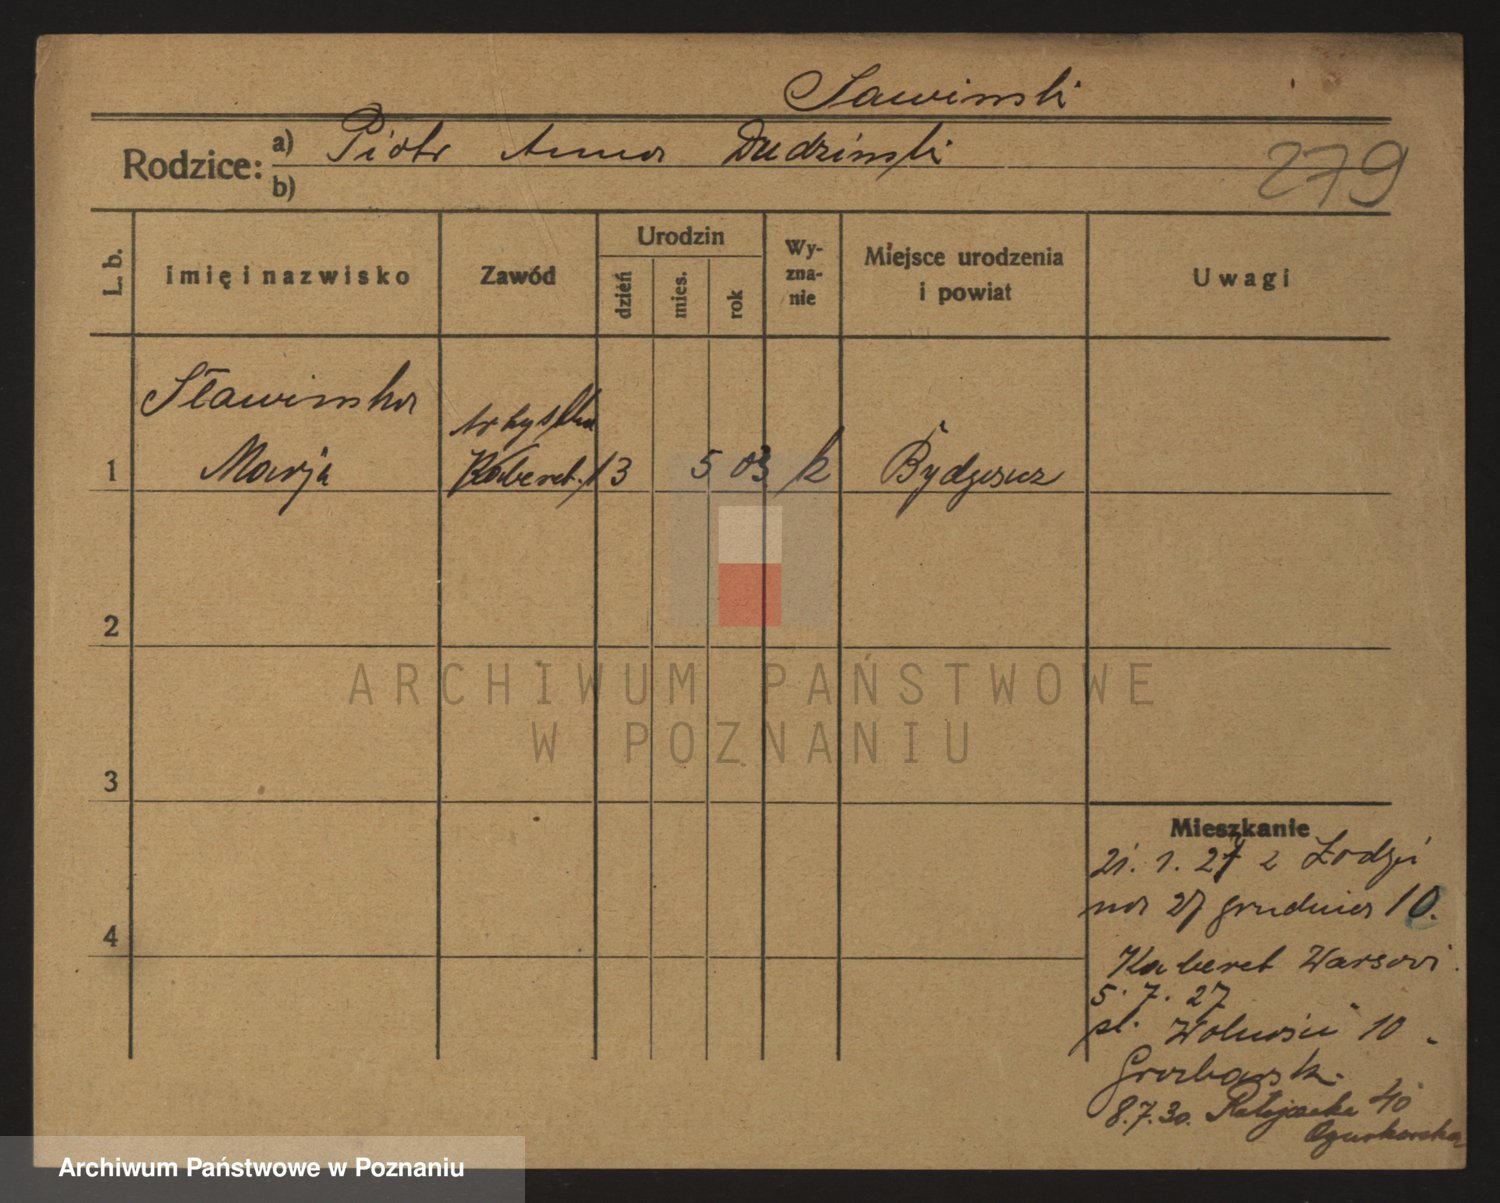 Sawinski
Rodzice: a) Piotr Anna Dudzinski
b)
279
L. b.
Imię i nazwisko
Zawód
Urodzin
dzień
mies.
rok
Wy-
zna-
nie
Miejsce urodzenia
i powiat
Uwagi
Sławinska
Marja
artystka
Kabaret.
1
13
5
03
k
Bydgoszcz
2
3
4
Mieszkanie
21. 1. 27 z Łodzi
na 27 grudnia 10.
Kabaret Warsovi.
5. 7. 27
pl. Wolności 10
8.7.30. Ratajczaka 40
ARCHIWUM PAŃSTWOWE
W POZNANIU
Archiwum Państwowe w Poznaniu